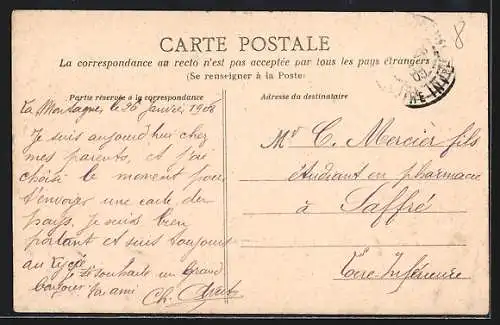 8
CARTE POSTALE
La correspondance au recto n'est pas acceptée par tous les pays étrangers
(Se renseigner à la Poste)
Partie réservée à la correspondance
Adresse du destinataire
La Montagne, le 26 Janvier 1908
Je suis aujourd'hui chez
mes parents, et j'ai
choisi le moment pour
t'envoyer une carte du
pays. Je suis bien
portant et suis toujours
au Lycée
Je te souhaite un Grand
bonjour ton ami Ch.
Mr C. Mercier fils
étudiant en pharmacie
à Saffré
Loire-Inférieure